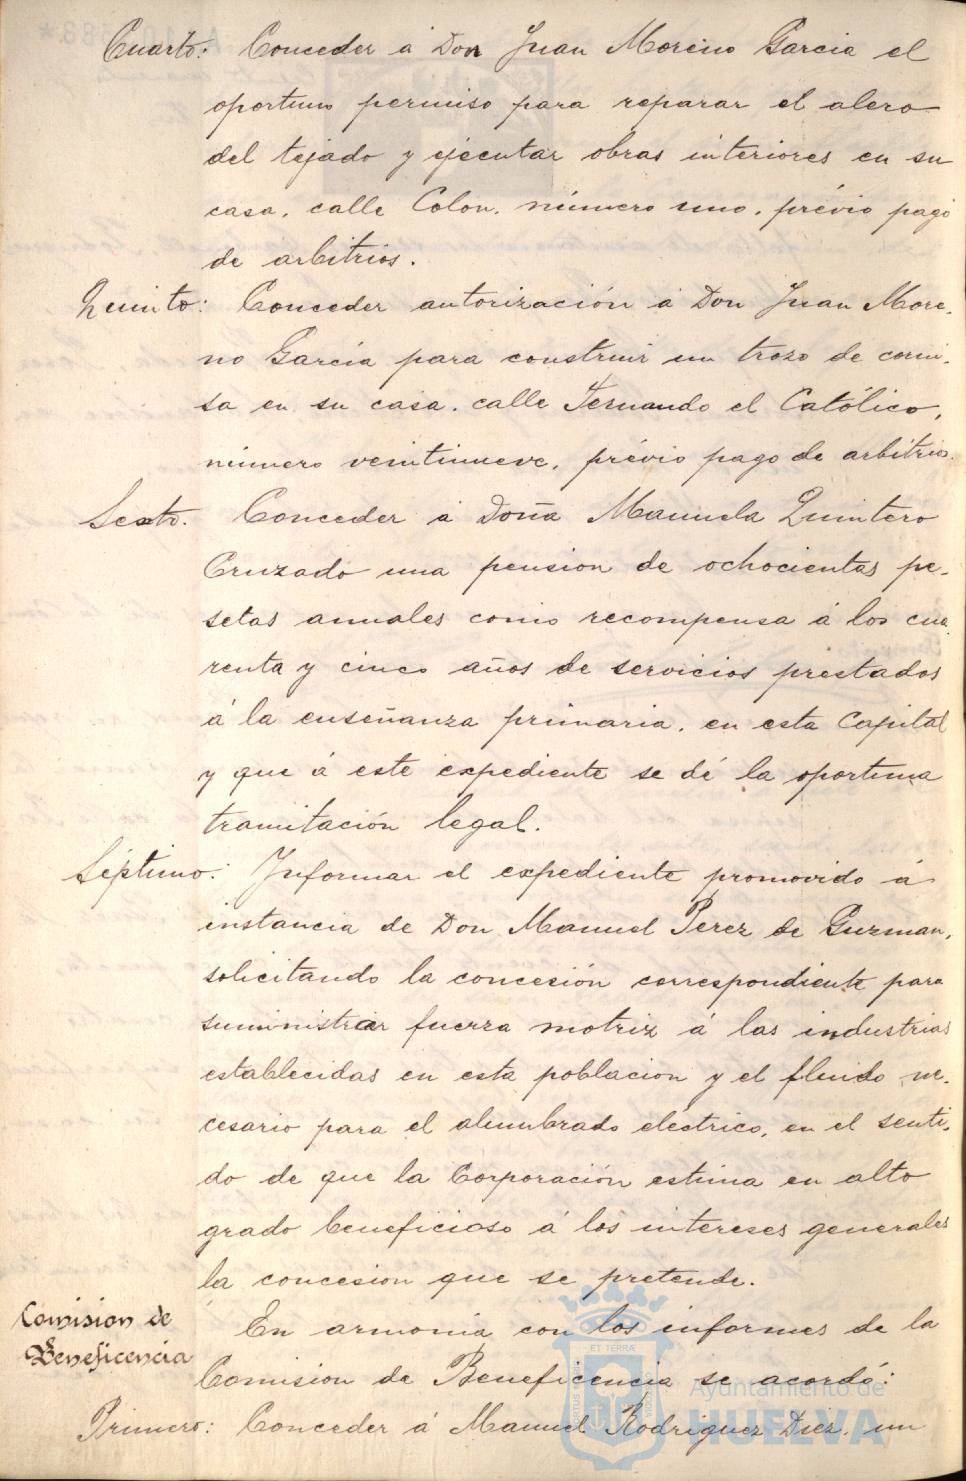 Cuarto: Conceder á Don Juan Moreno Garcia el
oportuno permiso para reparar el alero
del tejado y ejecutar obras interiores en su
casa, calle Colon, número uno, prévio pago
de arbitrios.
Quinto: Conceder autorización á Don Juan More-
no García para construir un trozo de corni-
sa en su casa, calle Fernando el Católico,
número veintinueve, prévio pago de arbitrios.
Sexto. Conceder á Doña Manuela Quintero
Cruzado una pension de ochocientas pe-
setas anuales como recompensa á los cua-
renta y cinco años de servicios prestados
á la enseñanza primaria, en esta Capital
y que á este expediente se dé la oportuna
tramitación legal.
Séptimo: Informar el expediente promovido á
instancia de Don Manuel Perez de Guzman,
solicitando la concesión correspondiente para
suministrar fuerza motriz á las industrias
establecidas en esta poblacion y el fluido ne-
cesario para el alumbrado eléctrico, en el senti-
do de que la Corporación estima en alto
grado beneficioso á los intereses generales
la concesion que se pretende.
Comision de
Beneficencia
En armonia con los informes de la
Comision de Beneficencia se acordó:
Primero: Conceder á Manuel Rodriguez Diez, un
Ayuntamiento de
HUELVA